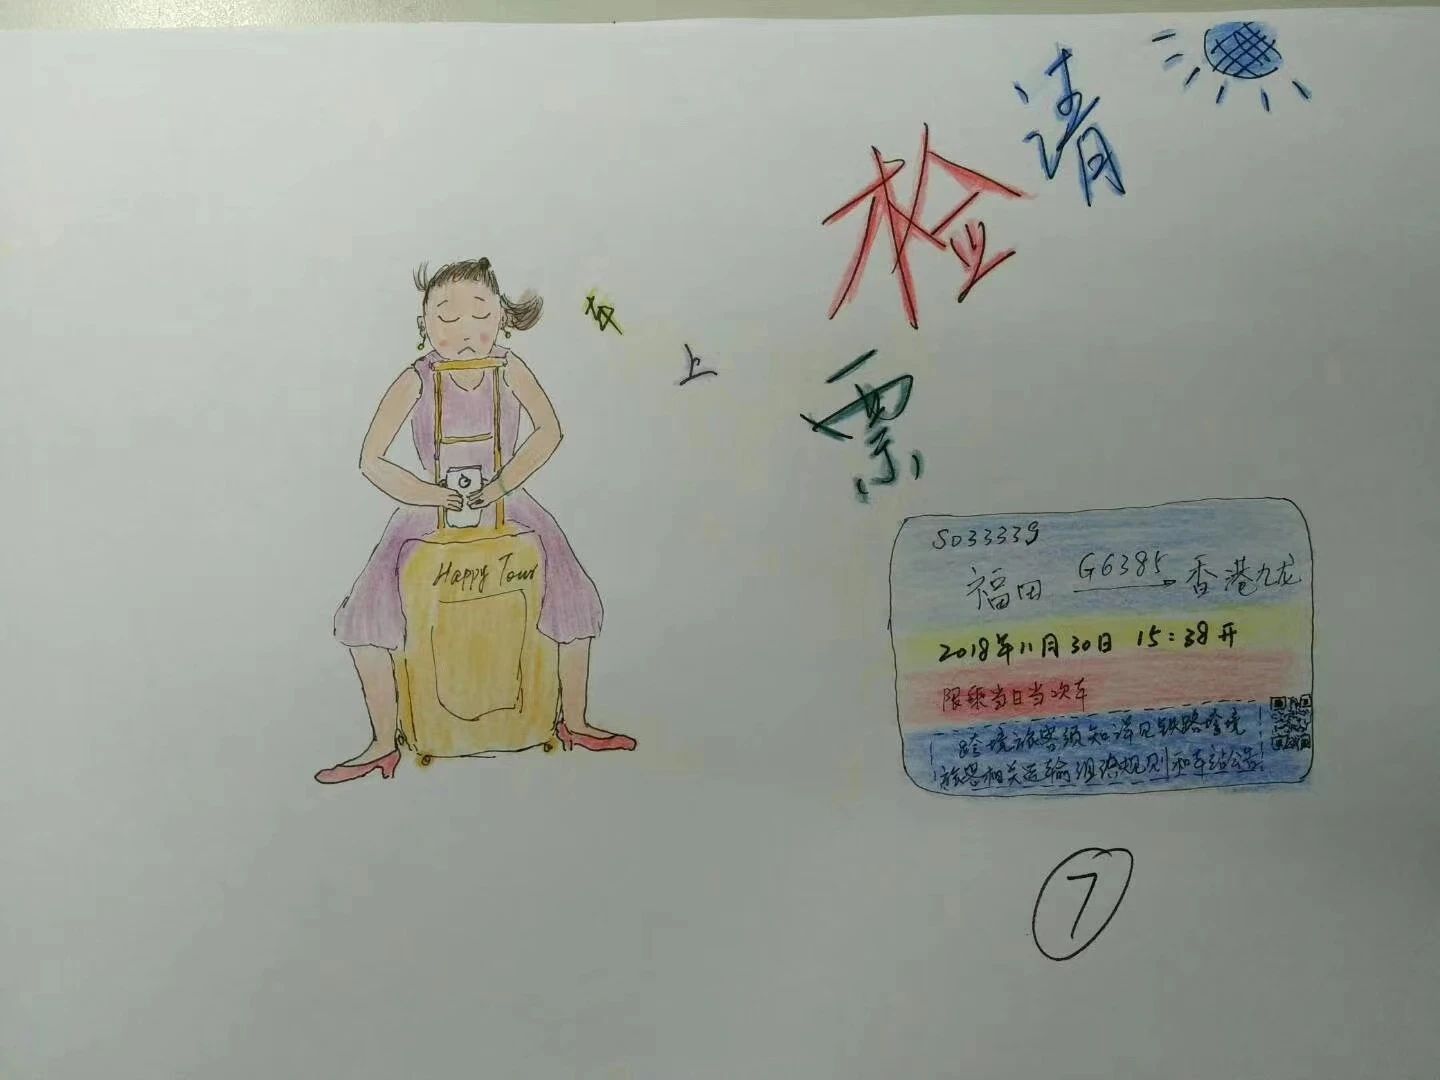 请
检
票
上
车
Happy Tour
S033339
福田 G6385 香港九龙
2018年11月30日 15:38开
限乘当日当次车
跨境旅客须知详见铁路跨境
旅客相关运输组织规则和车站公告
7